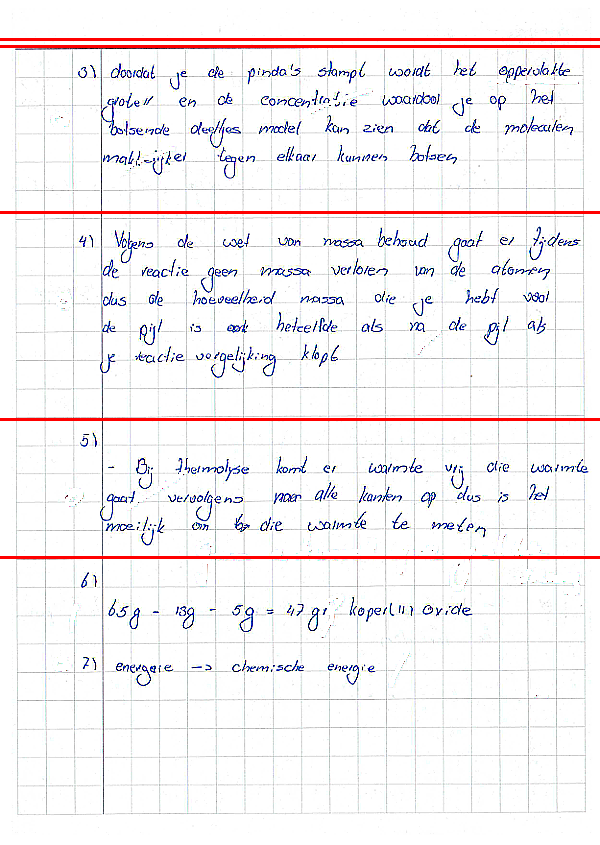 3) doordat je de pinda's stampt wordt het oppervlakte
groter en de concentratie waardoor je op het
botsende deeltjes model kan zien dat de moleculen
makk-ijker tegen elkaar kunnen botsen
4) Volgens de wet van massa behoud gaat er tijdens
de reactie geen massa verloren van de atomen
dus de hoeveelheid massa die je hebt voor
de pijl is hetzelfde als na de pijl als
je reactie vergelijking klopt
5)
- Bij thermolyse komt er warmte vrij die warmte
gaat vervolgens naar alle kanten op dus is het
moeilijk om die warmte te meten
6)
65g - 13g - 5g = 47 gr koper(II) oxide
7) energie -> chemische energie